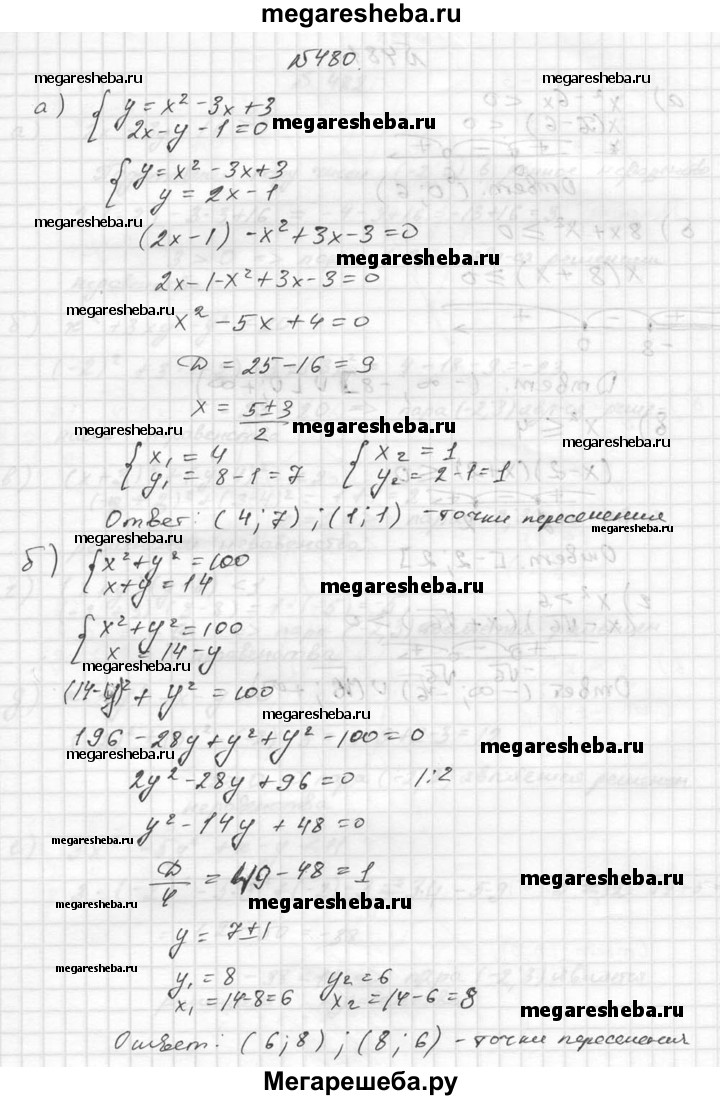 megaresheba.ru
№480.
megaresheba.ru megaresheba.ru
а) { y = x² - 3x + 3
2x - y - 1 = 0 megaresheba.ru
{ y = x² - 3x + 3
y = 2x - 1
megaresheba.ru
(2x - 1) - x² + 3x - 3 = 0
megaresheba.ru
2x - 1 - x² + 3x - 3 = 0
megaresheba.ru
x² - 5x + 4 = 0
D = 25 - 16 = 9
x = (5 ± 3)/2
megaresheba.ru megaresheba.ru
megaresheba.ru
{ x₁ = 4 { x₂ = 1
y₁ = 8 - 1 = 7 y₂ = 2 - 1 = 1
Ответ: (4; 7) ; (1; 1) - точки пересечения
megaresheba.ru
б) { x² + y² = 100
x + y = 14 megaresheba.ru
{ x² + y² = 100
x = 14 - y
megaresheba.ru
(14 - y)² + y² = 100
megaresheba.ru
196 - 28y + y² + y² - 100 = 0
megaresheba.ru megaresheba.ru
2y² - 28y + 96 = 0 /:2
y² - 14y + 48 = 0
megaresheba.ru
D/4 = 49 - 48 = 1
megaresheba.ru
megaresheba.ru megaresheba.ru
y = 7 ± 1
megaresheba.ru
y₁ = 8 y₂ = 6
x₁ = 14 - 8 = 6 x₂ = 14 - 6 = 8
megaresheba.ru
Ответ: (6; 8) ; (8; 6) - точки пересечения
Мегарешеба.ру